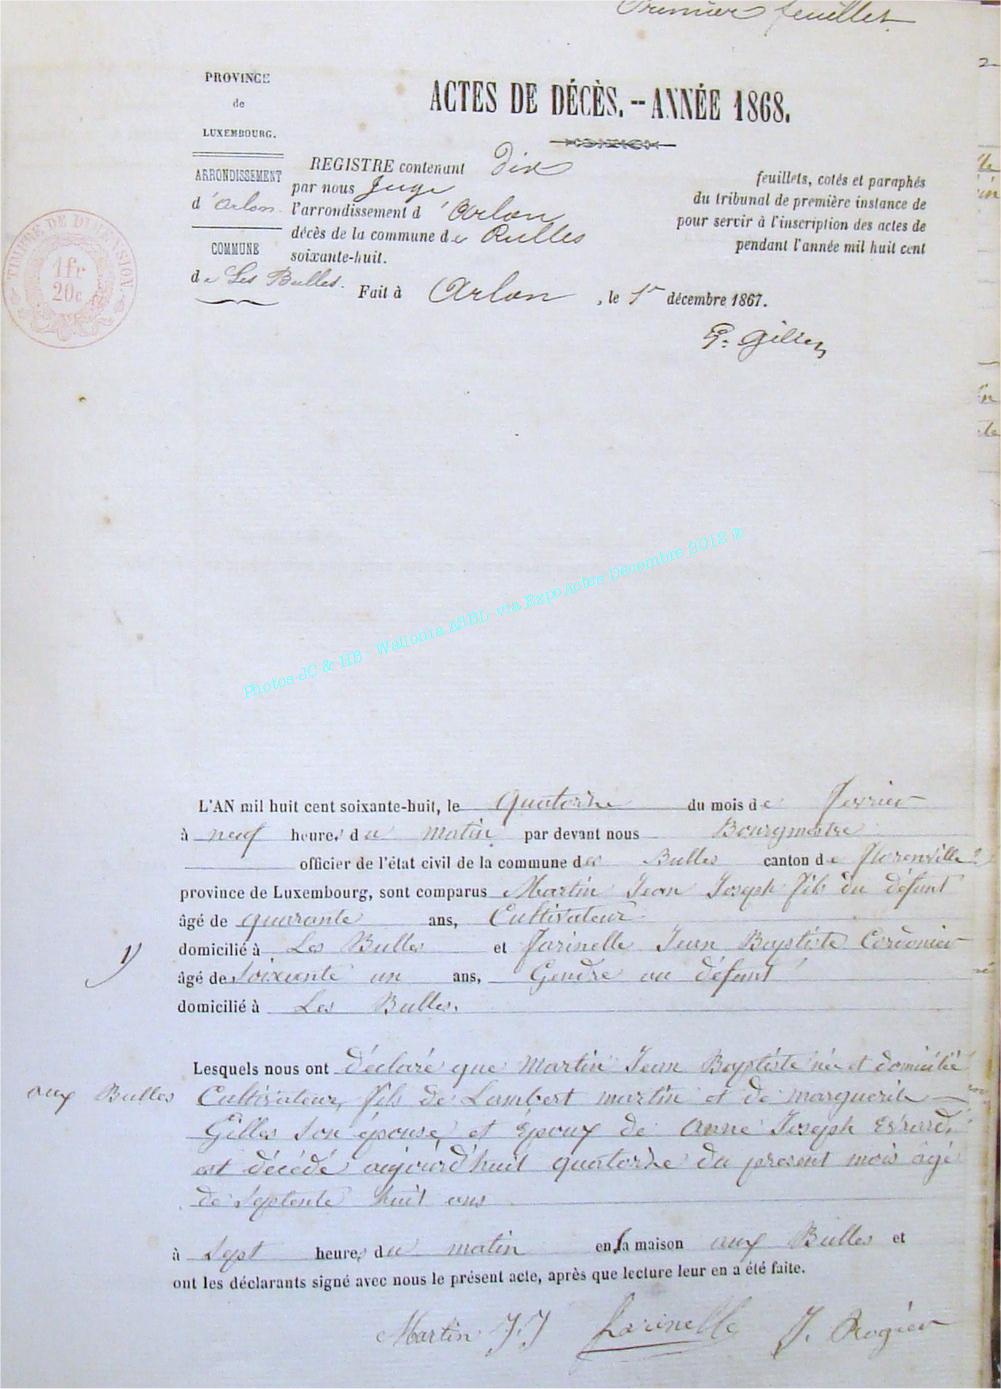 Premier feuillet
PROVINCE
de
LUXEMBOURG.
ACTES DE DÉCÈS. -- ANNÉE 1868.
ARRONDISSEMENT
d'Arlon.
COMMUNE
de Les Bulles.
REGISTRE contenant Dix feuillets, cotés et paraphés
par nous Juge du tribunal de première instance de
l'arrondissement d'Arlon pour servir à l'inscription des actes de
décès de la commune des Bulles pendant l'année mil huit cent
soixante-huit.
Fait à Arlon, le 1er décembre 1867.
TIMBRE DE DIMENSION
1fr
20c
Photos JC & HB - Wallonia ASBL via ExpoActes Décembre 2012 ©
L'AN mil huit cent soixante-huit, le quatorze du mois de fevrier
à neuf heures du matin par devant nous Bourgmestre
officier de l'état civil de la commune des Bulles canton de florenville
province de Luxembourg, sont comparus Martin Jean Joseph fils du défunt
âgé de quarante ans, Cultivateur
domicilié à Les Bulles et Farinelle Jean Baptiste Cordonier
âgé de soixante un ans, Gendre au défunt
domicilié à Les Bulles.
Lesquels nous ont déclaré que martin Jean Baptiste né et domicilié
aux Bulles Cultivateur, fils de Lambert martin et de marguerite
Gilles son épouse et époux de anne Joseph Evrard,
est décédé aujourd'huit quatorze du present mois agé
de septente huit ans
à sept heures du matin en sa maison aux Bulles et
ont les déclarants signé avec nous le présent acte, après que lecture leur en a été faite.
Martin J.J Farinelle J. Rogier